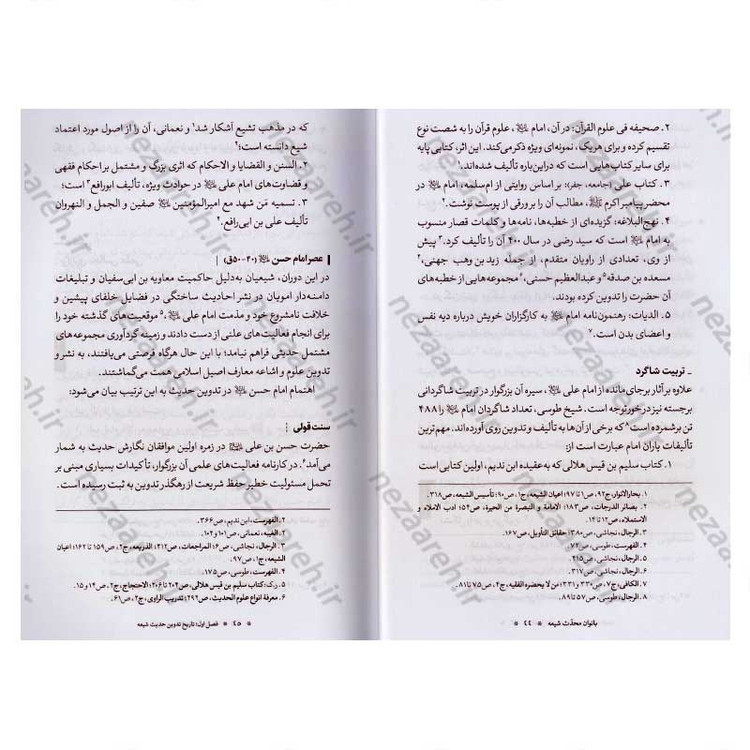 ۲. صحیفه فی علوم القرآن: در آن، امام، علوم قرآن را به شصت نوع
تقسیم کرده و برای هریک، نمونه‌ای ویژه ذکر می‌کند. این اثر، کتابی پایه
برای سایر کتاب‌هایی است که در این‌باره تألیف شده‌اند.۱
۳. کتاب علی (جامعه، جفر): بر اساس روایتی از ام‌سلمه، امام در
محضر پیامبر اکرم، مطالب آن را بر ورقی از پوست نوشت.۲
۴. نهج‌البلاغه: گزیده‌ای از خطبه‌ها، نامه‌ها و کلمات قصار منسوب
به امام است که سید رضی در سال ۴۰۰ آن را تألیف کرد.۳ پیش
از وی، تعدادی از راویان متقدم، از جمله زید بن وهب جهنی،۴
مسعده بن صدقه۵ و عبدالعظیم حسنی،۶ مجموعه‌هایی از خطبه‌های
آن حضرت را تدوین کرده بودند.
۵. الدیات: رهنمون‌نامه امام به کارگزاران خویش درباره دیه نفس
و اعضای بدن است.۷
ـ تربیت شاگرد
علاوه بر آثار برجای مانده از امام علی، سیره آن بزرگوار در تربیت شاگردانی
برجسته نیز درخور توجه است. شیخ طوسی، تعداد شاگردان امام را ۴۸۸
تن برشمرده است۸ که برخی از آن‌ها به تألیف و تدوین روی آورده‌اند. مهم‌ترین
تألیفات یاران امام عبارت است از:
۱. کتاب سلیم بن قیس هلالی که به عقیده ابن ندیم، اولین کتابی است
۱. بحارالانوار، ج۹۲، ص۱ تا ۹۷؛ اعیان الشیعه، ج۱، ص۹۰؛ تأسیس الشیعه، ص۳۱۸.
۲. بصائر الدرجات، ص۱۸۳؛ الامامة و التبصرة من الحیرة، ص۵۴؛ ادب الاملاء و
الاستملاء، ص۱۲ تا ۱۴.
۳. الرجال، نجاشی، ص۳۸۰؛ حقائق التأویل، ص۱۶۷.
۴. الفهرست، طوسی، ص۷۲.
۵. الرجال، نجاشی، ص۲۱۵.
۶. الرجال، نجاشی، ص۳۱۷.
۷. الکافی، ج۷، ص۳۳۰ و ۳۳۱؛ من لا یحضره الفقیه، ج۴، ص۷۵ تا ۸۱.
۸. الرجال، طوسی، ص۵۷ تا ۸۹.
بانوان محدّث شیعه * ۴۴ *
که در مذهب تشیع آشکار شد۱ و نعمانی، آن را از اصول مورد اعتماد
شیع دانسته است؛۲
۲. السنن و القضایا و الاحکام که اثری بزرگ و مشتمل بر احکام فقهی
و قضاوت‌های امام علی در حوادث ویژه، تألیف ابورافع۳ است؛
۳. تسمیه من شهد مع امیرالمؤمنین صفین و الجمل و النهروان
تألیف علی بن ابی‌رافع.۴
عصر امام حسن (۴۰-۵۰ق)
در این دوران، شیعیان به‌دلیل حاکمیت معاویه بن ابی‌سفیان و تبلیغات
دامنه‌دار امویان در نشر احادیث ساختگی در فضایل خلفای پیشین و
خلافت نامشروع خود و مذمت امام علی،۵ موقعیت‌های گذشته خود را
برای انجام فعالیت‌های علنی از دست دادند و زمینه گردآوری مجموعه‌های
مشتمل حدیثی فراهم نیامد؛ با این حال هرگاه فرصتی می‌یافتند، به نشر و
تدوین علوم و اشاعه معارف اصیل اسلامی همت می‌گماشتند.
اهتمام امام حسن در تدوین حدیث به این ترتیب بیان می‌شود:
سنت قولی
حضرت حسن بن علی در زمره اولین موافقان نگارش حدیث به شمار
می‌آمد۶. در کارنامه فعالیت‌های علمی آن بزرگوار، تأکیدات بسیاری مبنی بر
تحمل مسئولیت خطیر حفظ شریعت از رهگذر تدوین به ثبت رسیده است.
۱. الفهرست، ابن ندیم، ص۳۶۶.
۲. الغیبه، نعمانی، ص۱۰۱ و ۱۰۲.
۳. الرجال، نجاشی، ص۶؛ المراجعات، ص۴۱۲؛ الذریعه، ج۲، ص۱۵۹ تا ۱۶۲؛ اعیان
الشیعه، ج۱، ص۹۷.
۴. الفهرست، طوسی، ص۱۷۵.
۵. رک: کتاب سلیم بن قیس هلالی، ص۲۰۴ تا ۲۰۶؛ الاحتجاج، ج۲، ص۱۴ و ۱۵.
۶. معرفة انواع علوم الحدیث، ص۲۹۲؛ تدریب الراوی، ج۲، ص۶۱.
* ۴۵ * فصل اول: تاریخ تدوین حدیث شیعه
nezaareh.ir